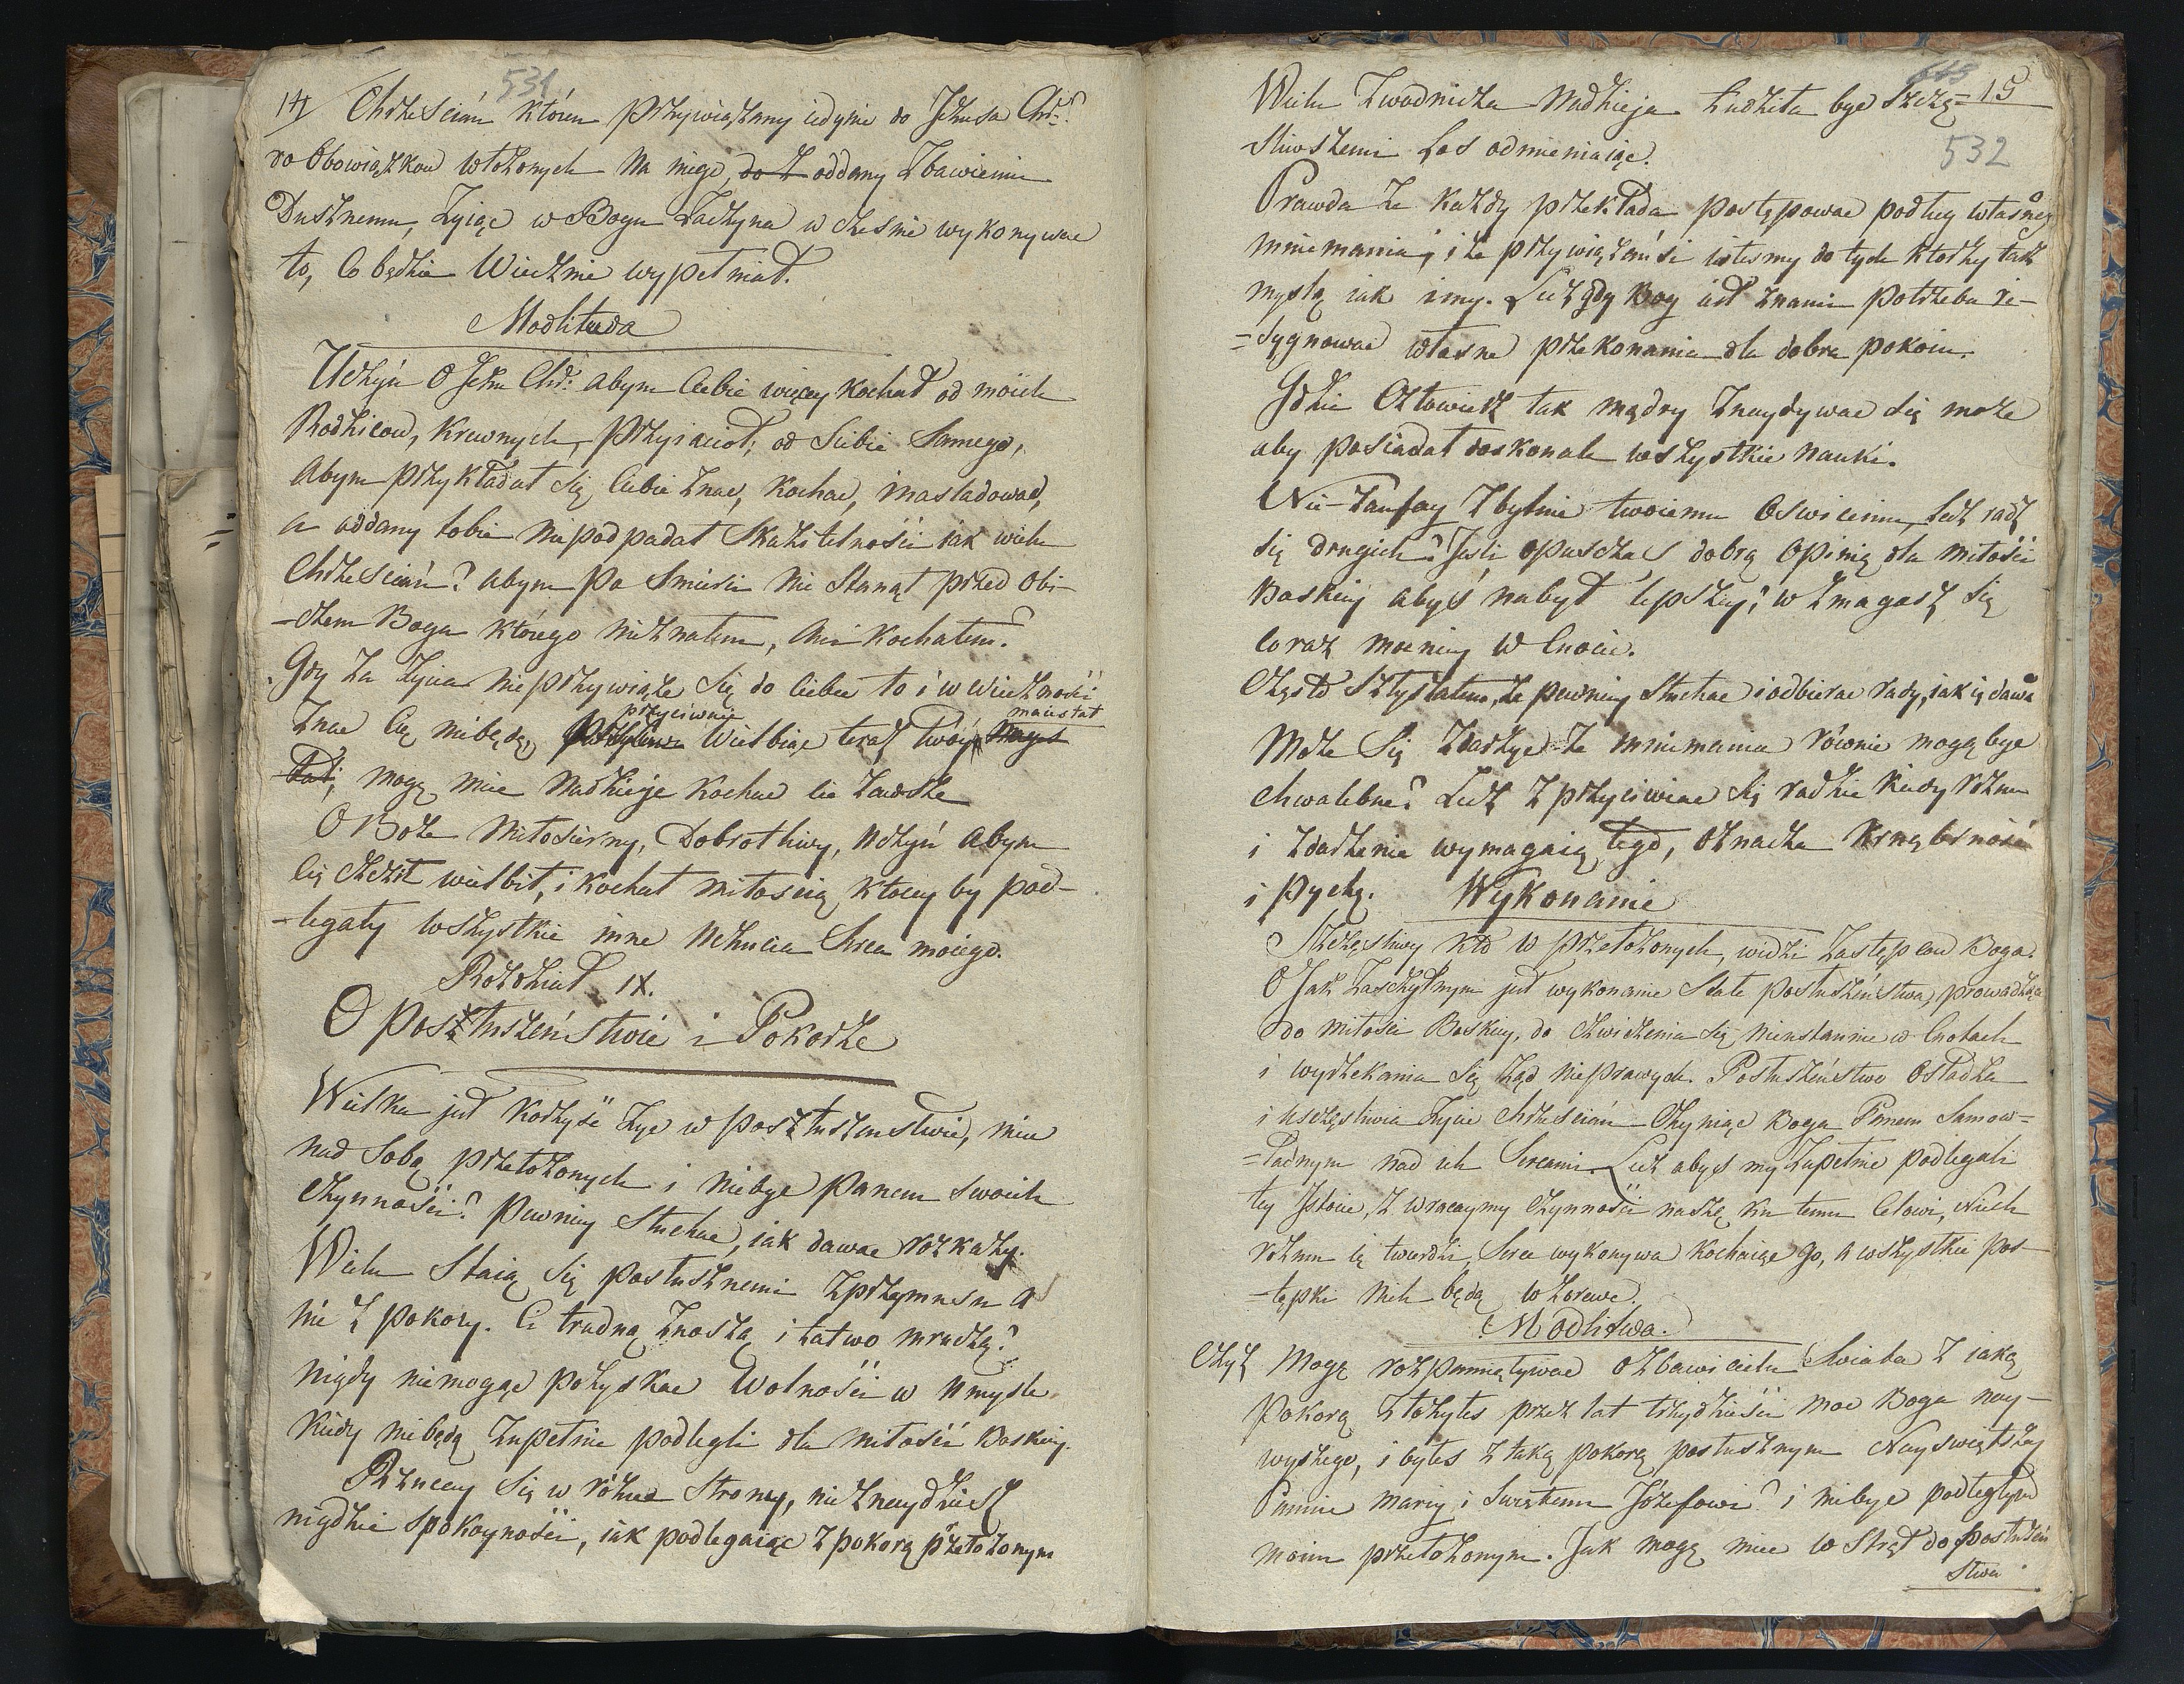 531
14 Chrześcián któren przywiązany iedynie do Jezusa Chr:
do Obowiązkow włożonych na niego, do Z oddany Zbawieniu
Dusznemu, Zyiąc w Bogu Zaczyna w czesnie wykonywac
to, Co będzie Wiecznie wypełniał.
Modlitwa
Uczyń O Jezu Chr: abym Ciebie więcey kochał od moich
Rodzicow, krewnych, przyiacioł, od Siebie Samego,
Abym przykładał się Ciebie znac, kochac, i nasladowac,
a oddany tobie niepodpadał Skazitelnosći iak wielu
Chrześcián? abym po Smierci nie Stanął przed Obi-
-czem Boga którego nieznałem, Ani kochałem?
Gdy za Zycia nieprzywiąże się do Ciebie to i w Wiecznośći
znac Cię niebędę, przyciwnie Wielbiąc teraz Twóy maiestat
mogę miec Nadzieje kochac Cię Zawsze
O Boże Miłosierny, Dobrotliwy, uczyń abym
Cię czcił wielbił, i kochał miłoscią ktorey by pod-
-legały wszystkie inne uczucia Serca moiego.
Rozdział IX.
O posłuszeństwie i Pokorze
Wielka jest korzyść żyć w posłuszenstwie, miec
nad sobą przełożonych i niebyc Panem Swoich
Czynnośći? pewniey Słuchac, iak dawac rozkazy.
Wielu Staią się posłusznemi z przymusu a
nie z pokory. Ci trudno znoszą i łatwo mruczą?
nigdy niemogąc pozyskac Wolnośći w umyśle
kiedy niebędą zupełnie podlegli dla miłośći Boskiey.
Rzucay się w różne Strony, nieznaydziesz
nigdzie spokoynośći, iak podlegaiąc z pokorą przełożonym
15
532
Wielu Zwodnicza Nadzieja Łudziła byc Szczę=
śliwszemi Los odmieniaiąc.
Prawda że każdy przekłada postępowac podług własneg
mniemania, i że przywiązańsi iestesmy do tych ktorzy tak
myślą iak i my. Lecz gdy Bog iest znami potrzeba re-
=sygnowac własne przekonania dla dobra pokoiu.
Gdzie Człowiek tak mądry znaydywac się może
aby posiadał doskonale wszystkie nauki.
Nie-Zaufay Zbytnie twoiemu Oswieceniu, lecz radź
się drugich? Jesli opuszczas dobrą Opinią dla miłośći
Boskiey abyś nabył lepszey? wzmagasz się
coraz mocniey w Cnocie.
Często Słyszałem, że pewniey Słuchac i odbierac rady, iak ią dawac
Może się zdarzyc że mniemania równie mogą byc
chwalebne? Lecz z przyciwiac się radzie kiedy rozum
i zdarzenia wymagaią tego, oznacza krnąbrność
i pychę.
Wykonanie
Szczęśliwy kto w przełożonych, widzi Zastępcow Boga.
O Jak Zaszczytnym jest wykonanie Stałe posłuszeństwa, prowadzące
do miłośći Boskiey, do cwiczenia się nieustannie w Cnotach
i wyrzekania się Żąd nieprawych. Posłuszeństwo Osładza
i uszczęśliwia życie Chrześcián Czyniąc Boga Panem Samow=
=ładnym nad ich Sercami. Lecz abys my zupełnie podlegali
tey Jstocie, z wracaymy Czynnośći naszę ku temu Celowi, Niech
rozum ią twierdzi, Serce wykonywa kochaiąc go, a wszystkie pos-
-tępki niech będą wzorowe.
Modlitwa.
Czyż Mogę rozpamiętywac O Zbawicielu Swiata z iaką
pokorą złożyłes przez lat trzydzieśći moc Boga nay-
wyższego, i byłes z taką pokorą posłusznym Nayswiętszey
Pannie Maryi i Swiętemu Józefowi? i niebyc podległym
moim przełożonym. Jak mogę miec wstręt do posłuszeń
stwa